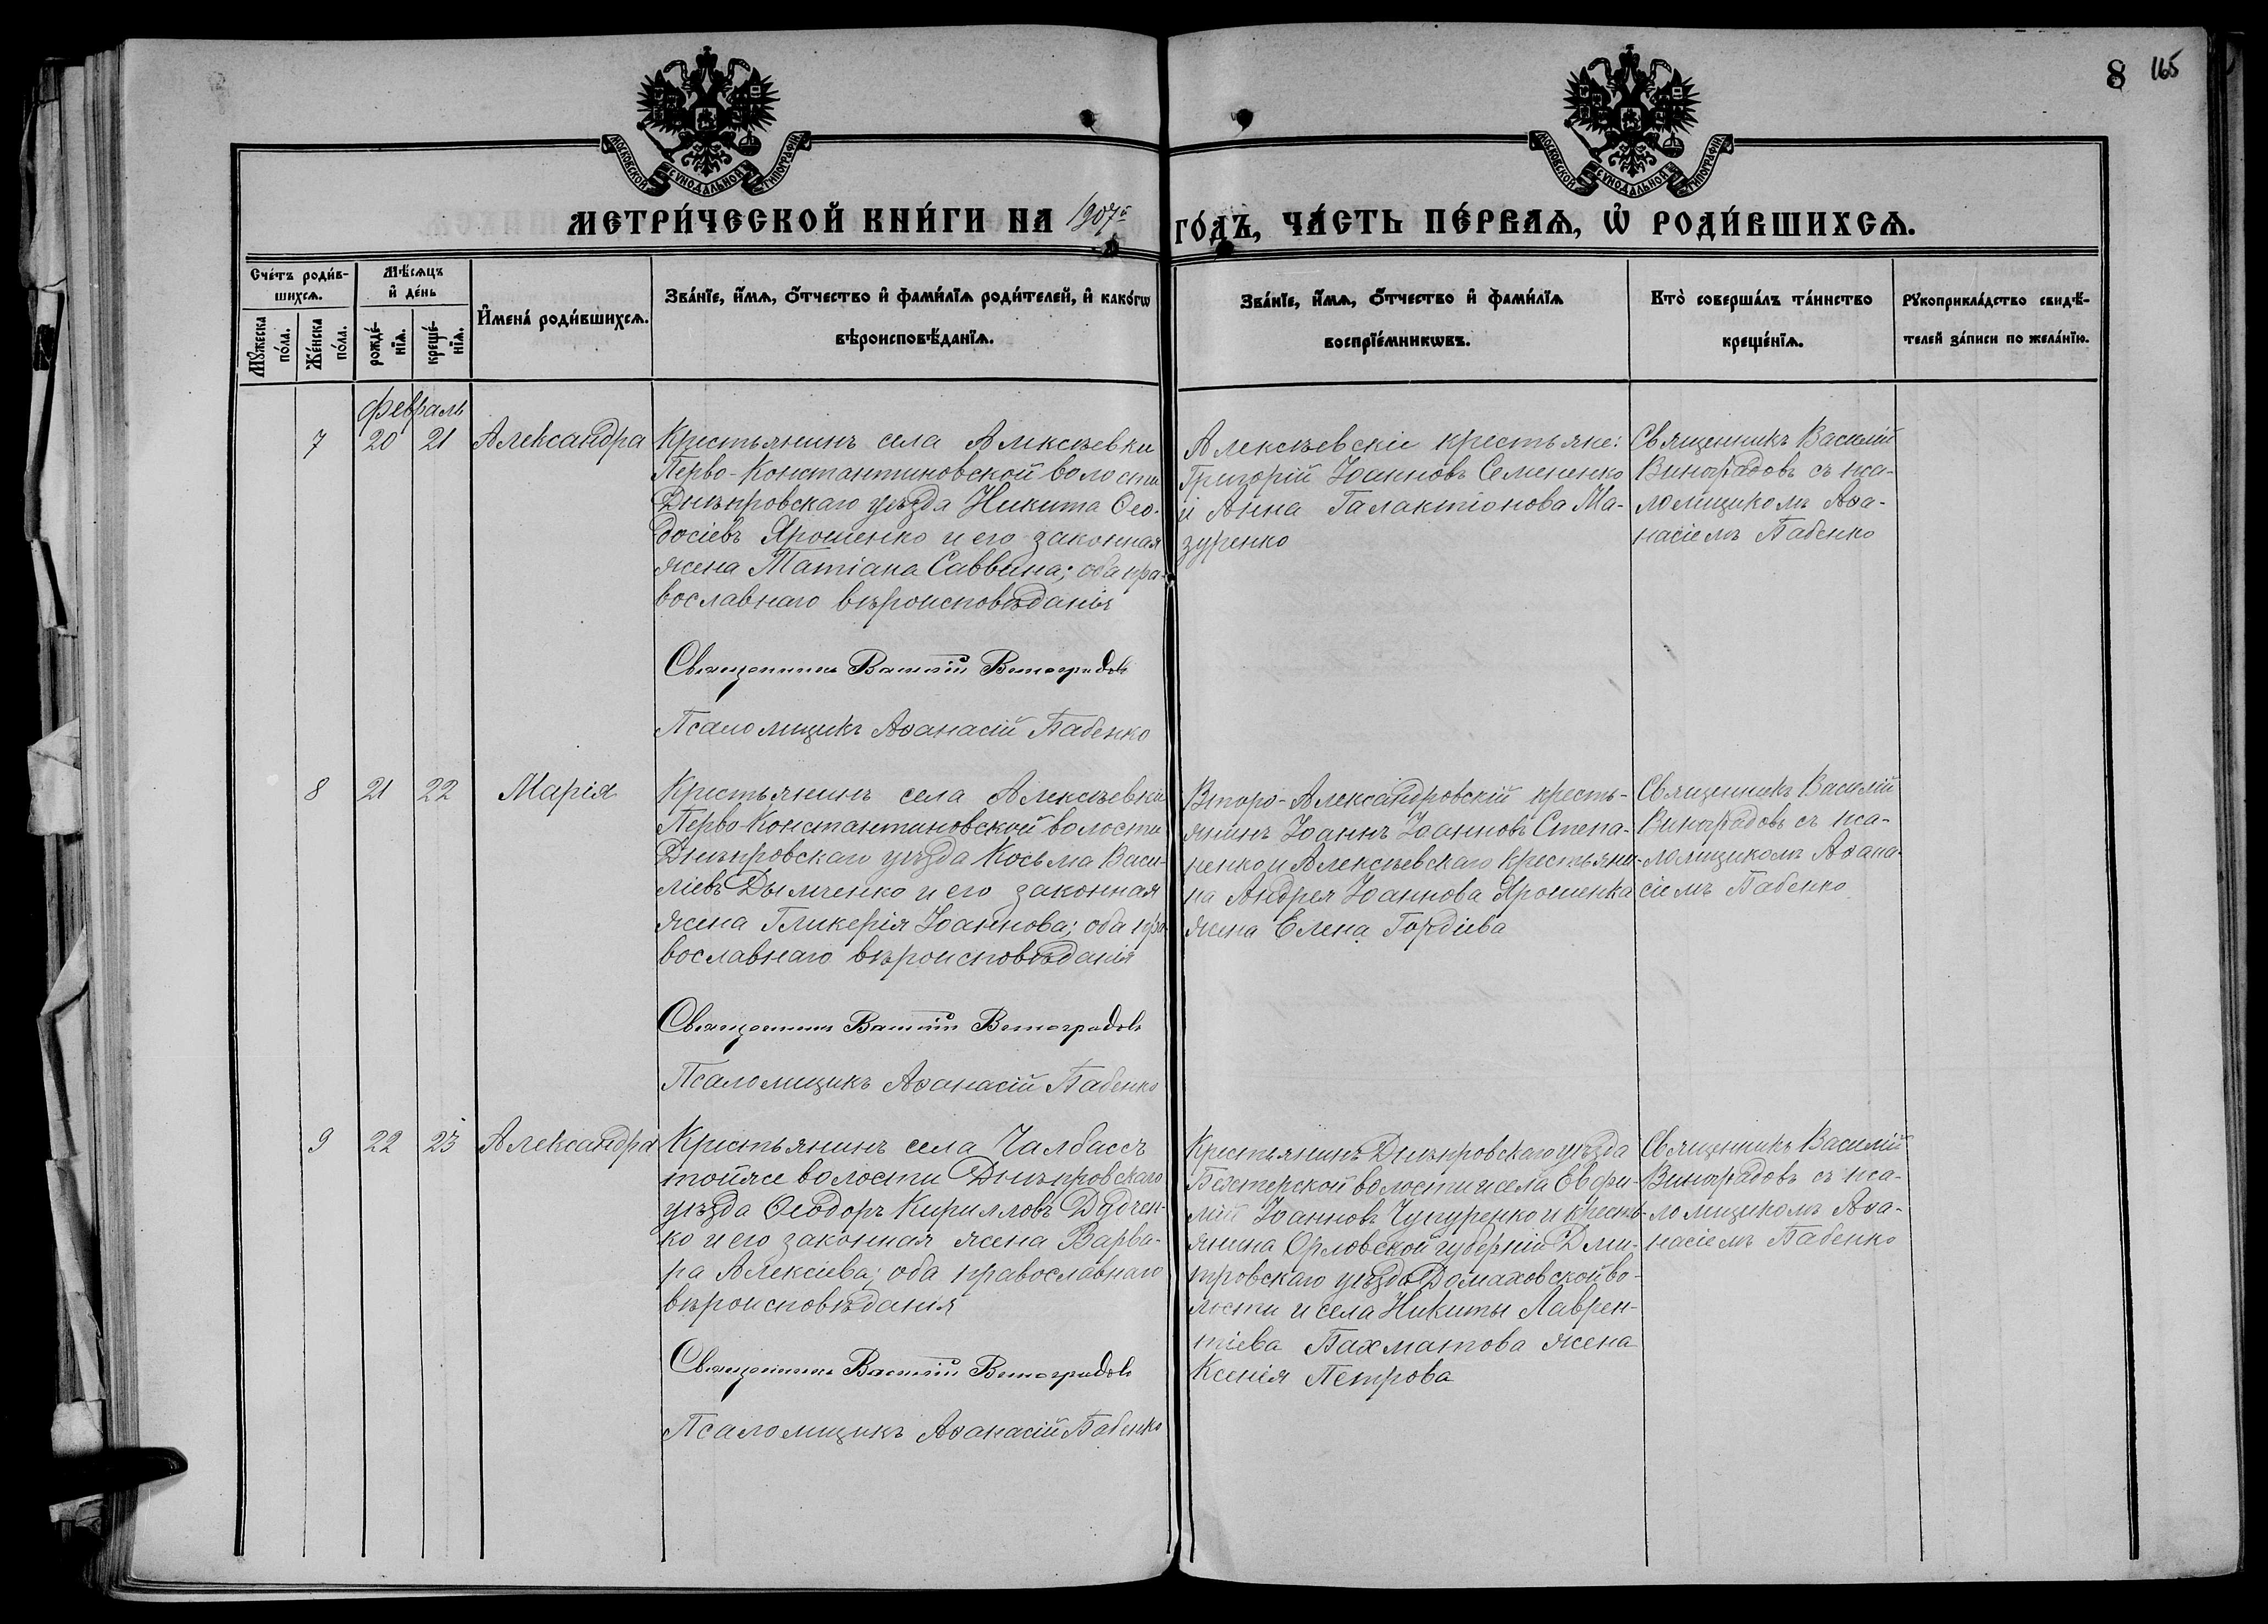 8 165
МОСКОВСКОЙ СѴНОДАЛЬНОЙ ТИПОГРАФІИ
МОСКОВСКОЙ СѴНОДАЛЬНОЙ ТИПОГРАФІИ
МЕТРИ́ЧЕСКОЙ КНИ́ГИ НА 1907й ГО́ДЪ, ЧА́СТЬ ПЕ́РВАѦ, Ѡ РОДИ́ВШИХСѦ.
Сче́тъ роди́в-
шихсѧ.
Мꙋ́жеска по́ла.
Же́нска по́ла.
Мѣ́сѧцъ
и҆ де́нь
рожде́-
нїѧ.
креще́-
нїѧ.
И҆мена́ роди́вшихсѧ.
Зва́нїе, и҆́мѧ, ѻ҆́тчество и҆ фами́лїѧ роди́телей, и҆ како́гѡ
вѣроисповѣ́данїѧ.
Зва́нїе, и҆́мѧ, ѻ҆́тчество и҆ фами́лїѧ
воспрїе́мникѡвъ.
Кто̀ соверша́лъ та́инство
креще́нїѧ.
Рꙋкоприкла́дство свидѣ́-
телей за́писи по жела́нїю.
Февраль
7 20 21 Александра
Крестьянинъ села Алексѣевки
Перво-Константиновской волости
Днѣпровскаго уѣзда Никита Ѳео-
досіевъ Ярошенко и его законная
жена Татіана Саввина; оба пра-
вославнаго вѣроисповѣданія
Священникъ Василій Виноградовъ
Псаломщикъ Аѳанасій Бабенко
Алексѣевскіе крестьяне:
Григорій Іоанновъ Семененко
и Анна Галактіонова Ма-
зуренко
Священникъ Василій
Виноградовъ съ пса-
ломщикомъ Аѳа-
насіемъ Бабенко
8 21 22 Марія
Крестьянинъ села Алексѣевки
Перво-Константиновской волости
Днѣпровскаго уѣзда Косьма Васи-
ліевъ Дымченко и его законная
жена Гликерія Іоаннова; оба пра-
вославнаго вѣроисповѣданія
Священникъ Василій Виноградовъ
Псаломщикъ Аѳанасій Бабенко
Второ-Александровскій кресть-
янинъ Іоаннъ Іоанновъ Степа-
ненко и Алексѣевскаго крестьяни-
на Андрея Іоаннова Ярошенка
жена Елена Гордіева
Священникъ Василій
Виноградовъ съ пса-
ломщикомъ Аѳана-
сіемъ Бабенко
9 22 23 Александра
Крестьянинъ села Чалбассъ
тойже волости Днѣпровскаго
уѣзда Ѳеодоръ Кирилловъ Дядчен-
ко и его законная жена Варва-
ра Алексіева; оба православнаго
вѣроисповѣданія
Священникъ Василій Виноградовъ
Псаломщикъ Аѳанасій Бабенко
Крестьянинъ Днѣпровскаго уѣзда
Бехтерской волости и села Евфи-
мій Іоанновъ Чупуренко и кресть-
янина Орловской губерніи Дми-
тровскаго уѣзда Домаховской во-
лости и села Никиты Лаврен-
тіева Бахматова жена
Ксенія Петрова
Священникъ Василій
Виноградовъ съ пса-
ломщикомъ Аѳа-
насіемъ Бабенко